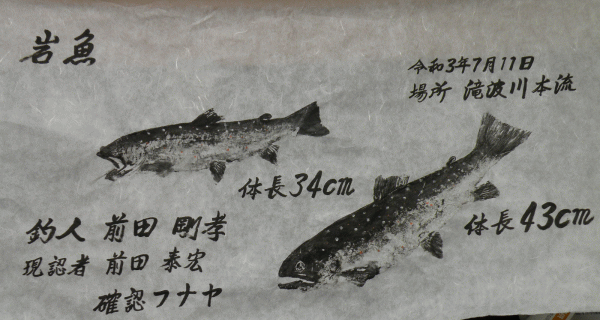 岩魚
令和3年7月11日
場所 滝波川本流
体長34cm
体長43cm
釣人 前田 剛孝
現認者 前田 泰宏
確認フナヤ